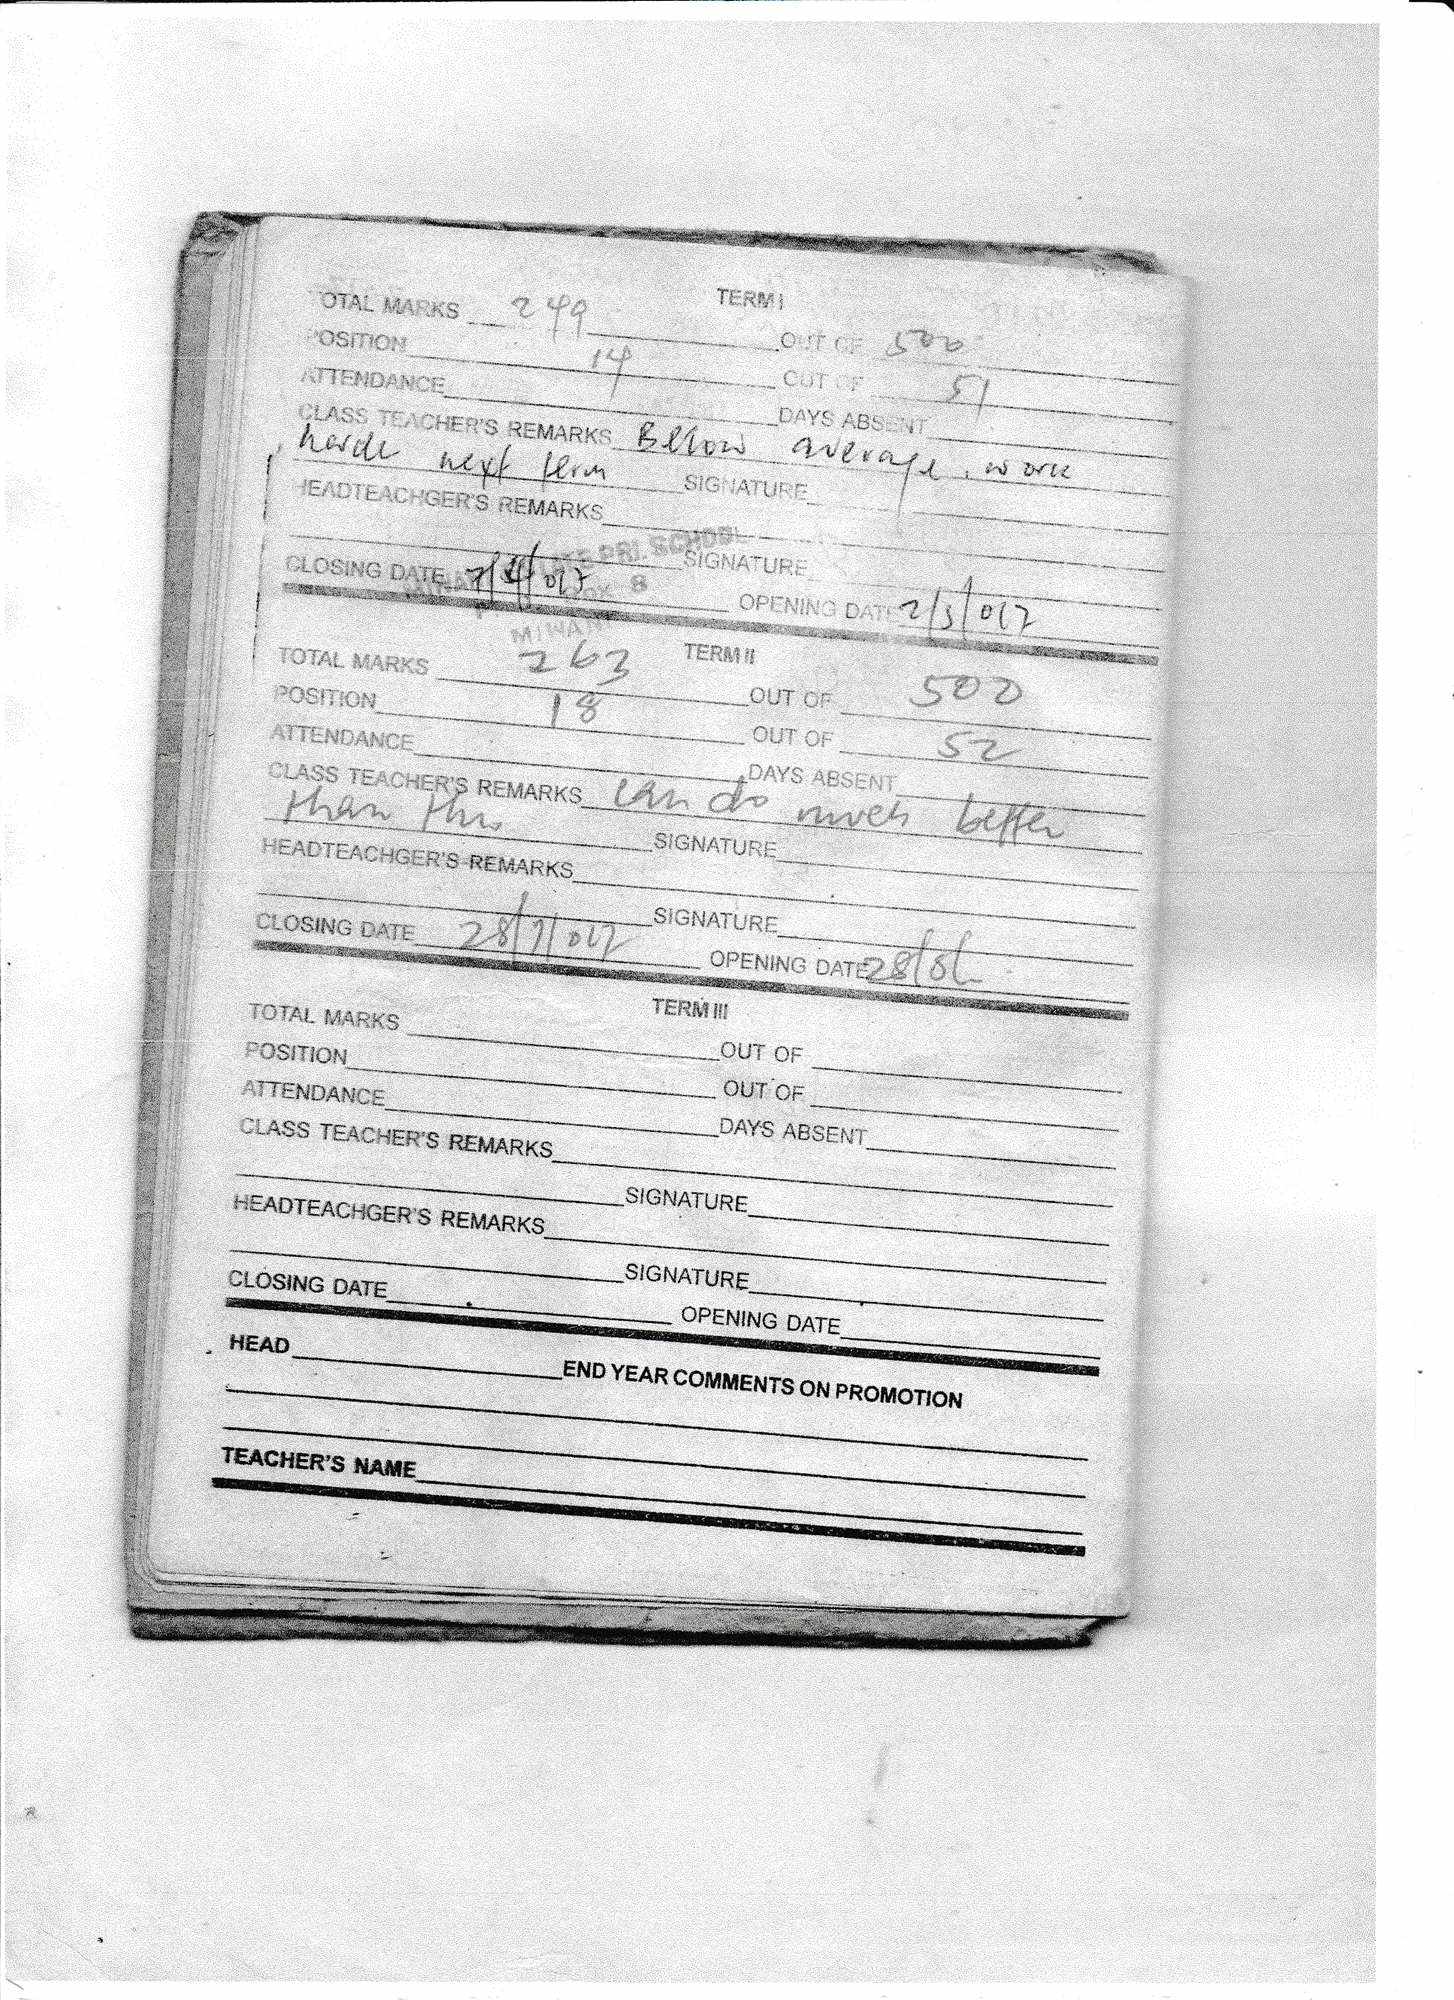 TERM I
TOTAL MARKS 249 OUT OF 500
POSITION 14 OUT OF 51
ATTENDANCE DAYS ABSENT
CLASS TEACHER'S REMARKS Below average, work
harder next term SIGNATURE
HEADTEACHGER'S REMARKS
SIGNATURE
PRI. SCHOOL
BOX 8
MIWANI
CLOSING DATE 7/4/017 OPENING DATE 2/5/017
TERM II
TOTAL MARKS 263 OUT OF 500
POSITION 18 OUT OF 52
ATTENDANCE DAYS ABSENT
CLASS TEACHER'S REMARKS Can do much better
than this SIGNATURE
HEADTEACHGER'S REMARKS
SIGNATURE
CLOSING DATE 28/7/017 OPENING DATE 28/8/
TERM III
TOTAL MARKS OUT OF
POSITION OUT OF
ATTENDANCE DAYS ABSENT
CLASS TEACHER'S REMARKS
SIGNATURE
HEADTEACHGER'S REMARKS
SIGNATURE
CLOSING DATE OPENING DATE
HEAD END YEAR COMMENTS ON PROMOTION
TEACHER'S NAME